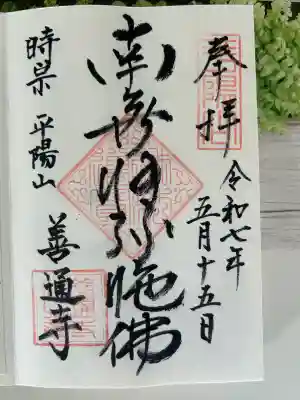 奉拝
令和七年
五月十五日
南無阿弥陀佛
時宗 平陽山
善通寺